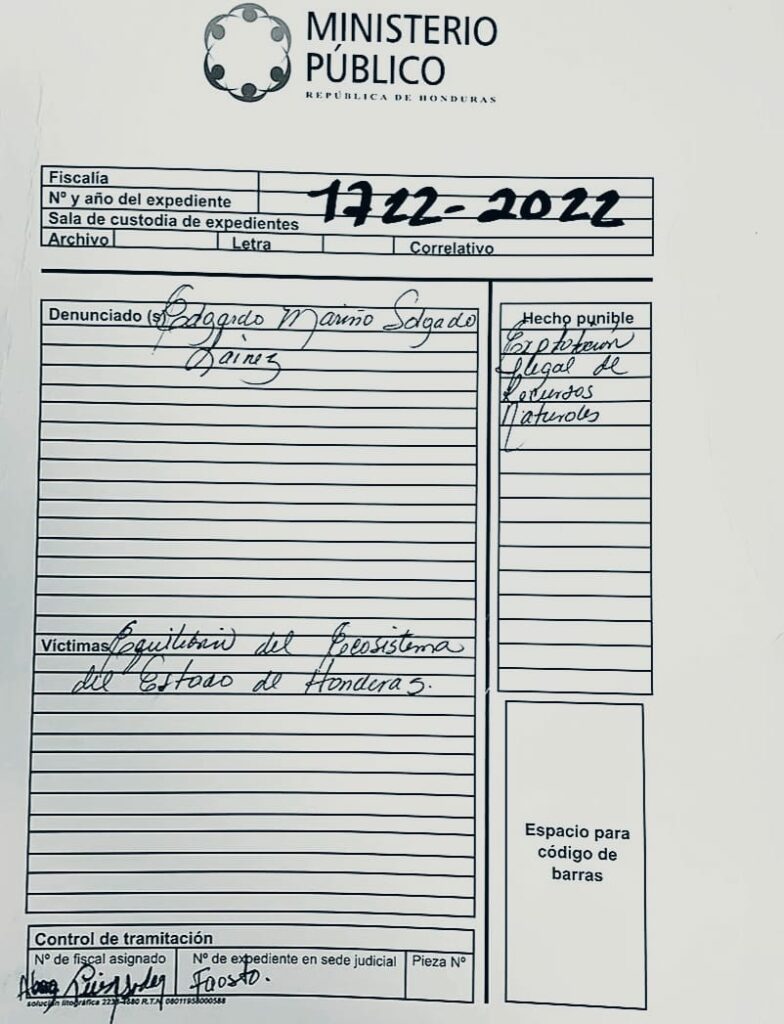 MINISTERIO
PÚBLICO
REPÚBLICA DE HONDURAS
Fiscalía
Nº y año del expediente 1722-2022
Sala de custodia de expedientes
Archivo Letra Correlativo
Denunciado (s) Edgardo Mariño Salgado
Laínez
Hecho punible
Explotación
Ilegal de
Recursos
Naturales
Víctimas Equilibrio del Ecosistema
del Estado de Honduras.
Espacio para
código de
barras
Control de tramitación
Nº de fiscal asignado
Nº de expediente en sede judicial
Pieza Nº
Abog
Faosto.
solución litográfica